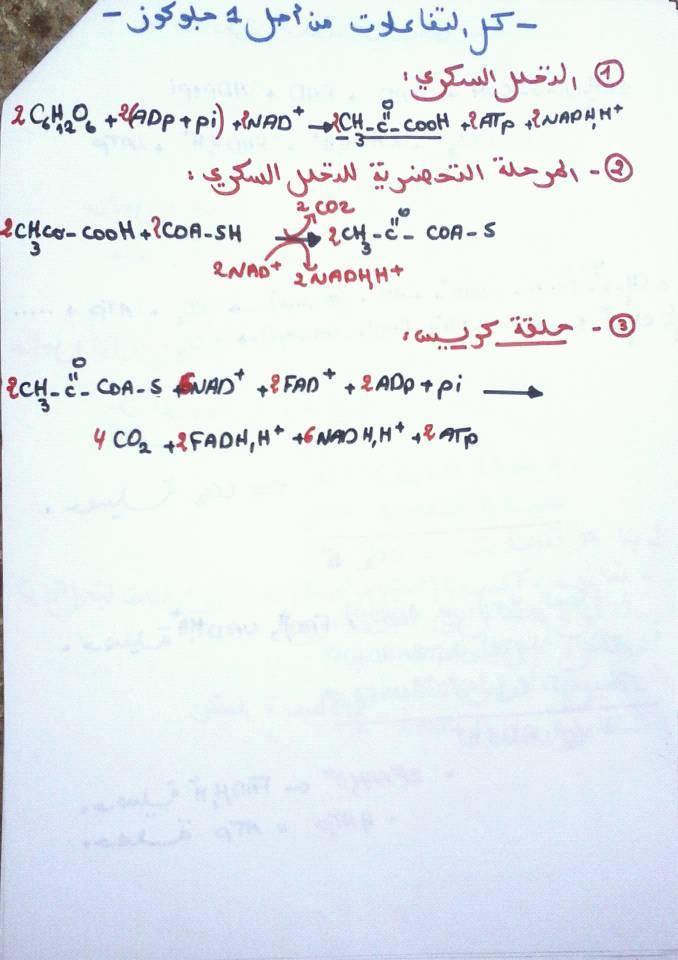 - كل التفاعلات من أجل 1 جلوكوز -
① التحلل السكري :
2C₆H₁₂O₆ + 2(ADP + pi) + 2NAD⁺ → 2CH₃-C(=O)-COOH + 2ATP + 2NADH,H⁺
② - المرحلة التحضرية للتحلل السكري :
2CO2
2CH₃CO-COOH + 2COA-SH → 2CH₃-C(=O)-COA-S
2NAD⁺ 2NADH,H⁺
③ - حلقة كريبس :
2CH₃-C(=O)-COA-S + 6NAD⁺ + 2FAD⁺ + 2ADP + pi →
4CO₂ + 2FADH,H⁺ + 6NADH,H⁺ + 2ATP